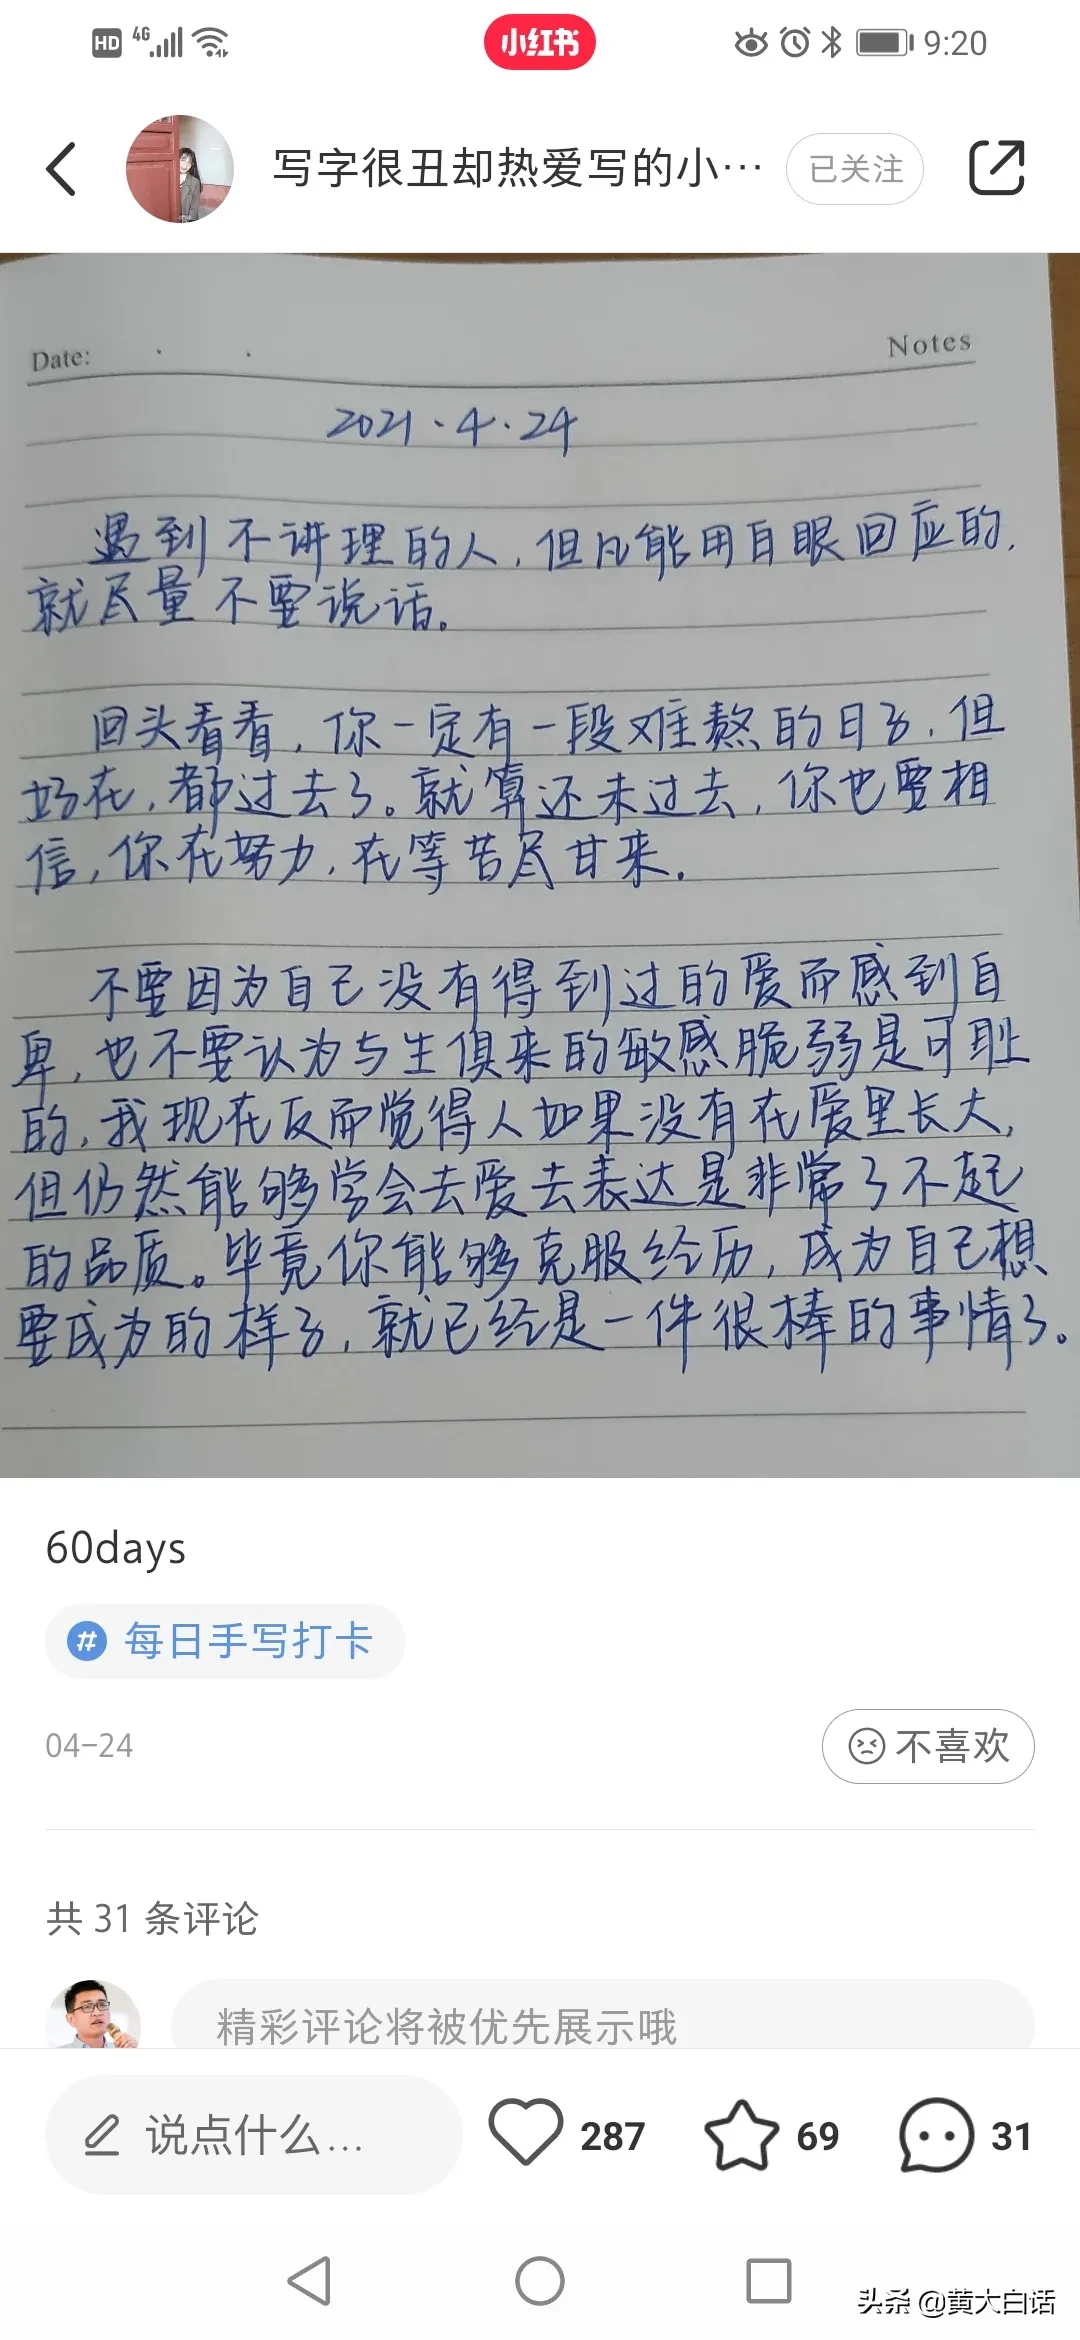 HD 4G 小红书 9:20
写字很丑却热爱写的小… 已关注
Date: . . Notes
2021.4.24
遇到不讲理的人,但凡能用白眼回应的,
就尽量不要说话。
回头看看,你一定有一段难熬的日子,但
好在,都过去了。就算还未过去,你也要相
信,你在努力,在等苦尽甘来.
不要因为自己没有得到过的爱而感到自
卑,也不要认为与生俱来的敏感脆弱是可耻
的,我现在反而觉得人如果没有在爱里长大,
但仍然能够学会去爱去表达是非常了不起
的品质。毕竟你能够克服经历,成为自己想
要成为的样子,就已经是一件很棒的事情了。
60days
# 每日手写打卡
04-24 不喜欢
共 31 条评论
精彩评论将被优先展示哦
说点什么... 287 69 31
头条 @黄大白话